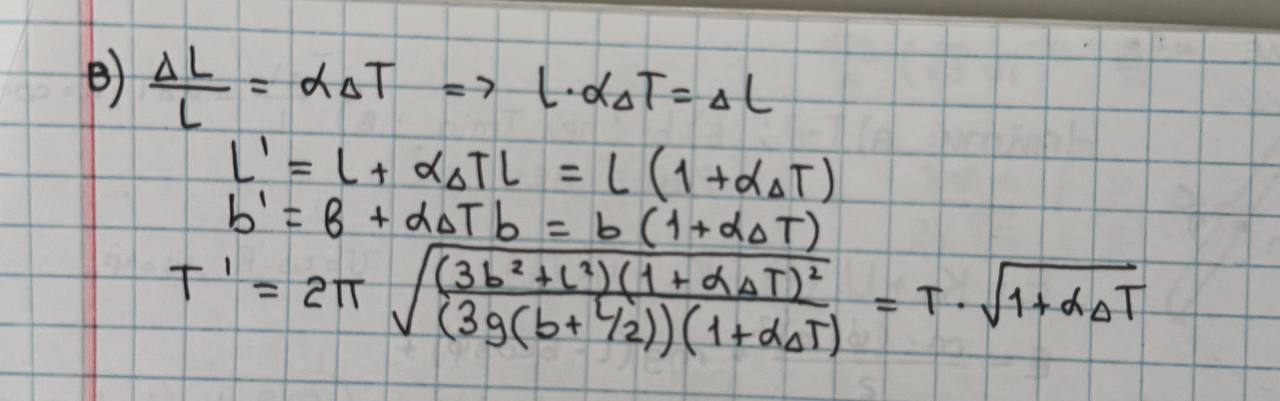 в) ΔL/L = αΔT => L·αΔT = ΔL
L' = L + αΔTL = L (1+αΔT)
b' = в + αΔTb = b (1+αΔT)
T' = 2π √((3b²+L²)(1+αΔT)²/(3g(b+L/2))(1+αΔT)) = T·√(1+αΔT)